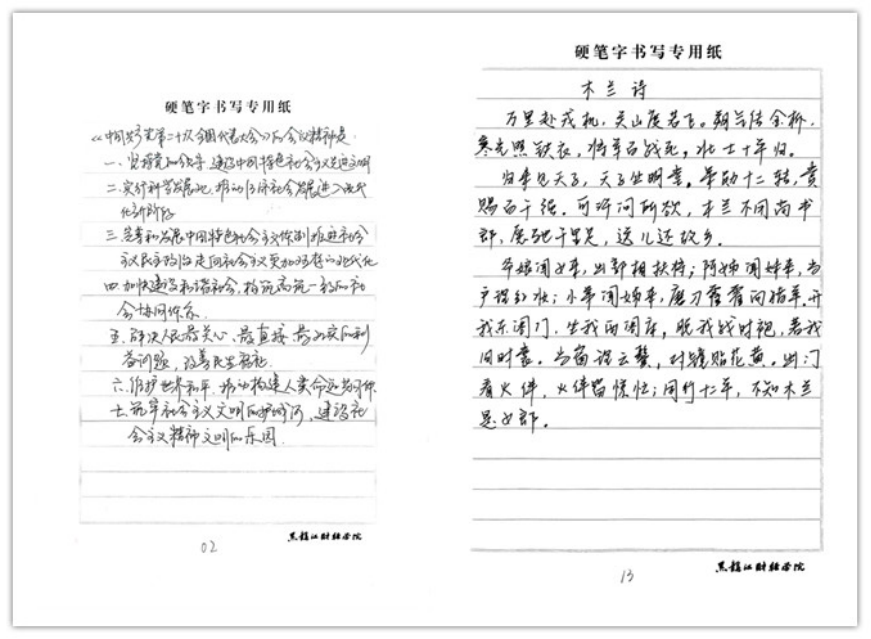 硬笔字书写专用纸
《中国共产党第二十次全国代表大会》的会议精神是
一、坚持党的领导，建设中国特色社会主义先进文明
二、实行科学发展观，推动经济社会发展进入现代
化新阶段
三、完善和发展中国特色社会主义体制推进社会
主义民主政治走向社会主义更加
四、加快建设和谐社会，构筑高筑一致的社
会协同体系
五、解决人民最关心、最直接、最现实的利
益问题，改善民生福祉.
六、维护世界和平，推动构建人类命运共同体
七、筑牢社会主义文明的护城河，建设社
会主义精神文明的乐园.
02
黑龙江财经学院
硬笔字书写专用纸
木兰诗
万里赴戎机，关山度若飞。朔气传金柝，
寒光照铁衣，将军百战死，壮士十年归。
归来见天子，天子坐明堂。策勋十二转，赏
赐百千强。可汗问所欲，木兰不用尚书
郎，愿驰千里足，送儿还故乡。
爷娘闻女来，出郭相扶将；阿姊闻妹来，当
户理红妆；小弟闻姊来，磨刀霍霍向猪羊，开
我东阁门，坐我西阁床，脱我战时袍，著我
旧时裳。当窗理云鬓，对镜贴花黄。出门
看火伴，火伴皆惊忙；同行十二年，不知木兰
是女郎。
13
黑龙江财经学院